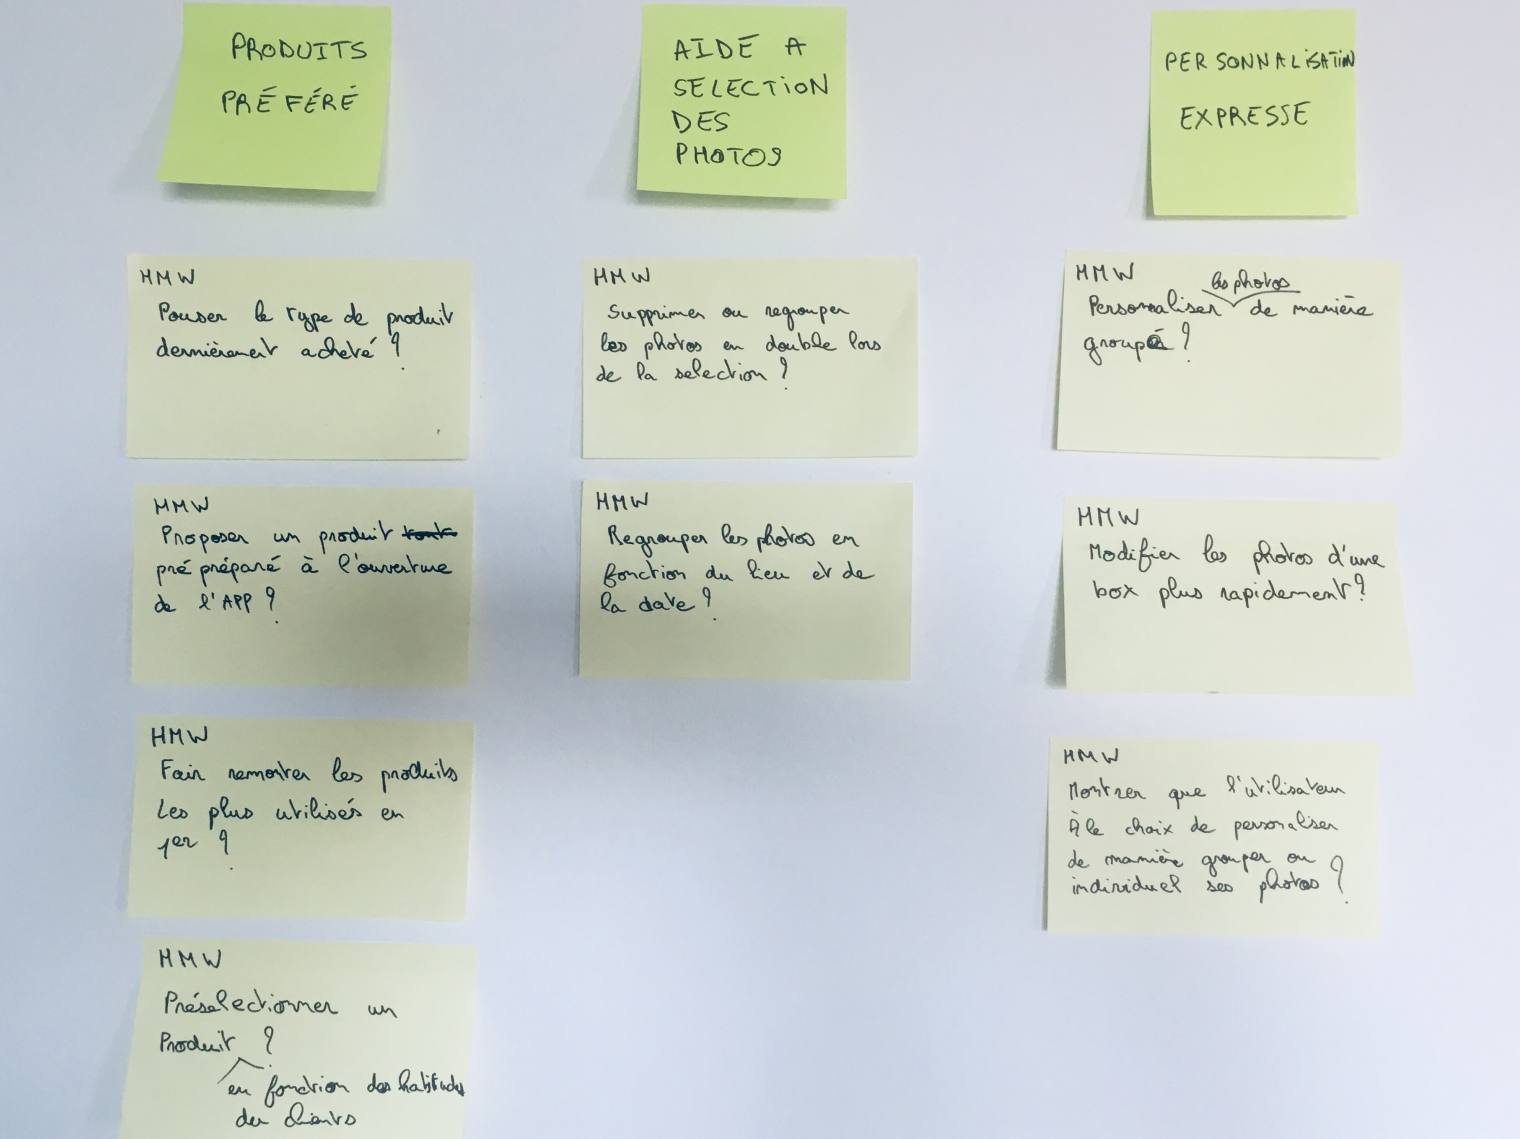 PRODUITS
PRÉFÉRÉ
HMW
Pouser le type de produit
dernièrement acheté ?
HMW
Proposer un produit tout
pré préparé à l'ouverture
de l'APP ?
HMW
Fair remonter les produits
Les plus utilisés en
1er ?
HMW
Préselectionner un
Produit ?
en fonction des habitudes
des clients
AIDE A
SELECTION
DES
PHOTOS
HMW
Supprimer ou regrouper
les photos en double lors
de la selection ?
HMW
Regrouper les photos en
fonction du lieu et de
la date ?
PERSONNALISATION
EXPRESSE
HMW
les photos
Personnaliser de manière
groupé ?
HMW
Modifier les photos d'une
box plus rapidement ?
HMW
Montrer que l'utilisateur
À le choix de personaliser
de manière grouper ou
individuel ses photos ?